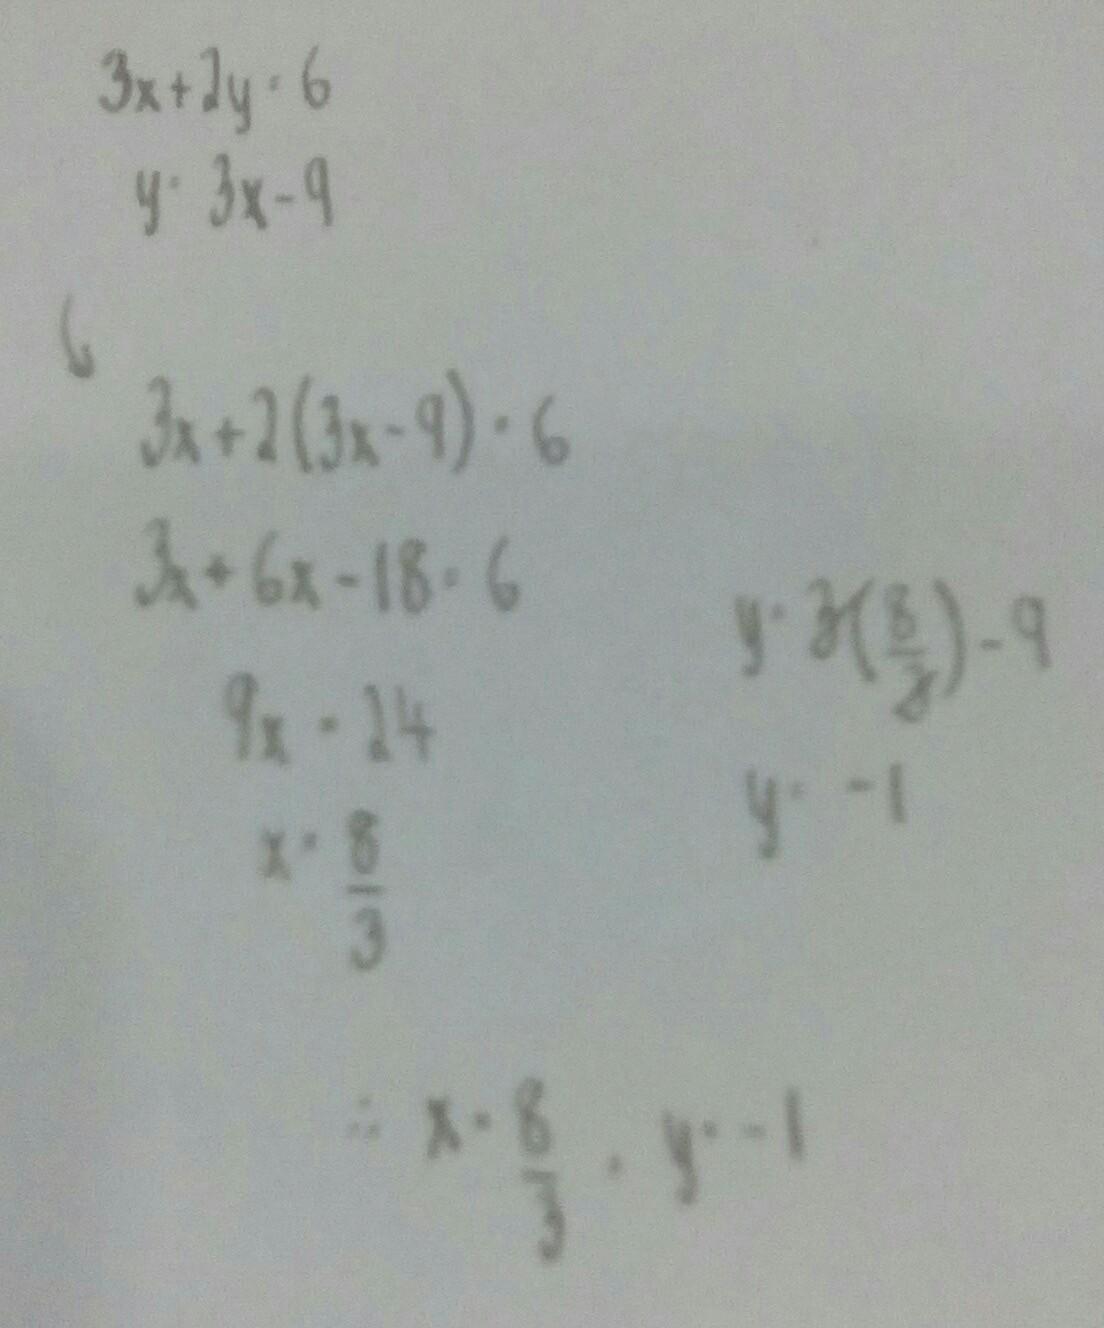 3x+2y=6
y=3x-9
3x+2(3x-9)=6
3x+6x-18=6
9x=24
x=8/3
y=3(8/3)-9
y=-1
∴ x=8/3, y=-1